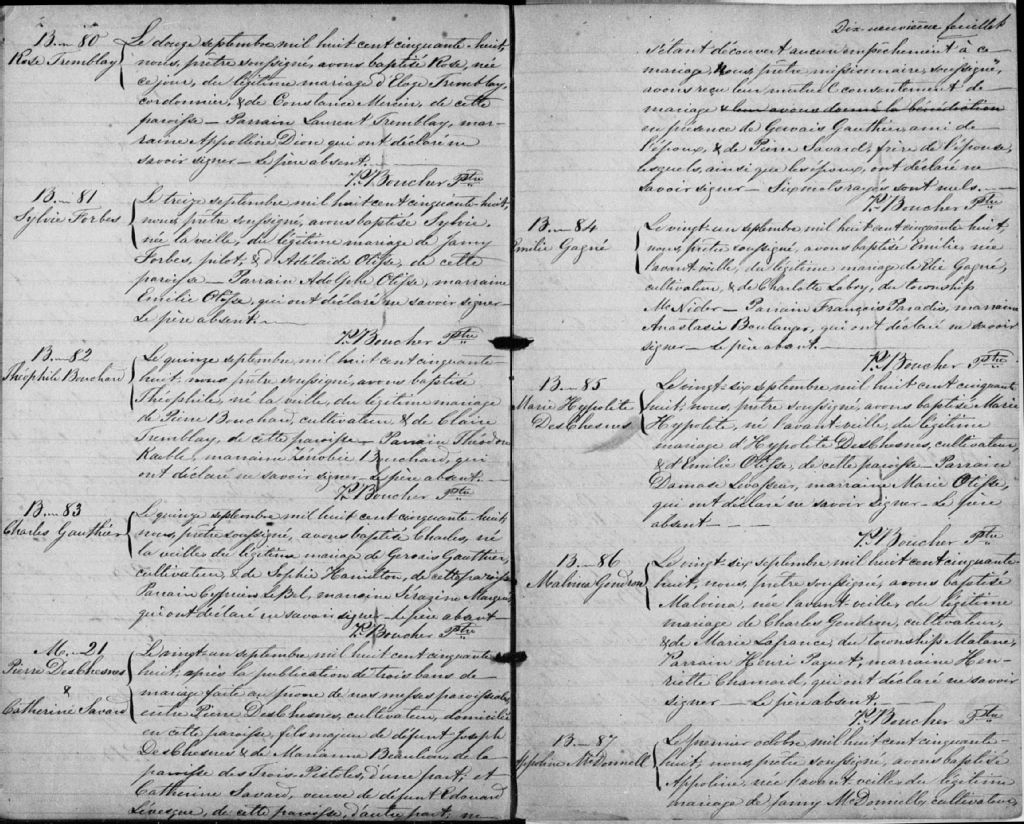 B.—80
Rose Tremblay
Le douze septembre mil huit cent cinquante-huit,
nous, prêtre soussigné, avons baptisé Rose, née
ce jour, du légitime mariage d'Eloge Tremblay,
cordonnier, & de Constance Mercier, de cette
paroisse — Parrain Laurent Tremblay, mar-
raine Appolline Dion qui ont déclaré ne
savoir signer — Le père absent. —
P. Boucher Ptre
B.—81
Sylvie Forbes
Le treize septembre mil huit cent cinquante-huit,
nous, prêtre soussigné, avons baptisé Sylvie,
née la veille, du légitime mariage de Jamy
Forbes, pilot, & d'Adélaïde Otisse, de cette
paroisse — Parrain Adolphe Otisse, marraine
Emilie Otisse, qui ont déclaré ne savoir signer —
Le père absent. —
P. Boucher Ptre
B.—82
Théophile Bouchard
Le quinze septembre, mil huit cent cinquante-
huit, nous prêtre soussigné, avons baptisé
Théophile, né la veille, du légitime mariage
de Pierre Bouchard, cultivateur & de Claire
Tremblay, de cette paroisse — Parrain Théodore
marraine Zénobie Bouchard, qui
ont déclaré ne savoir signer — Le père absent. —
P. Boucher Ptre
B.—83
Charles Gauthier
Le quinze septembre, mil huit cent cinquante-huit,
nous, prêtre soussigné, avons baptisé Charles, né
la veille du légitime mariage de Gervais Gauthier,
cultivateur, & de Sophie Hamilton, de cette paroisse
Parrain Cyprien LeBel, marraine
qui ont déclaré ne savoir signer — Le père absent
P. Boucher Ptre
M.—21
Pierre DesChesnes
&
Catherine Savard
Le vingt-un septembre, mil huit cent cinquante-
huit, après la publication de trois bans de
mariage faite au prone de nos messes paroissiales,
entre Pierre DesChesnes, cultivateur, domicilié
en cette paroisse, fils majeur de défunt Joseph
DesChesnes & de Marianne Beaulieu, de la
paroisse des Trois-Pistoles, d'une part; et
Catherine Savard, veuve de défunt Edouard
Lévesque, de cette paroisse, d'autre part; ne
Dix neuvième feuillet
s'étant découvert aucun empêchement à ce
mariage, Nous, prêtre missionnaire, soussigné,
avons reçu leur mutuel consentement de
mariage & leur avons donné la bénédiction
en présence de Gervais Gauthier, ami de
l'époux, & de Pierre Savard, frère de l'épouse,
lesquels, ainsi que les époux, ont déclaré ne
savoir signer — Six mots rayés sont nuls. —
P. Boucher Ptre
B.—84
Emilie Gagné
Le vingt-un septembre mil huit cent cinquante huit,
nous, prêtre soussigné, avons baptisé Emilie, née
l'avant-veille, du légitime mariage de Elie Gagné,
cultivateur, & de Charlotte Leboy, du township
McNider — Parrain François Paradis, marraine
Anastasie Boulanger, qui ont déclaré ne savoir
signer — Le père absent. —
P. Boucher Ptre
B.—85
Marie Hypolite
DesChesnes
Le vingt-six septembre mil huit cent cinquante
huit, nous, prêtre soussigné, avons baptisé Marie
Hypolite, né l'avant-veille, du légitime
mariage d'Hypolite DesChesnes, cultivateur,
& d'Emilie Otisse, de cette paroisse — Parrain
Damase Levasseur, marraine Marie Otisse,
qui ont déclaré ne savoir signer — Le père
absent —
P. Boucher Ptre
B.—86
Malvina Gendron
Le vingt-six septembre, mil huit cent cinquante-
huit, nous, prêtre soussigné, avons baptisé
Malvina, née l'avant-veille, du légitime
mariage de Charles Gendron, cultivateur,
& de Marie Lafrance, du township Matane,
Parrain Henri Paquet, marraine Hen-
riette Chamard, qui ont déclaré ne savoir
signer — Le père absent. —
P. Boucher Ptre
B.—87
Appoline McDonnell
Le premier octobre mil huit cent cinquante-
huit; nous, prêtre soussigné, avons baptisé
Appoline, née l'avant-veille, du légitime
mariage de Jamy McDonnell, cultivateur,